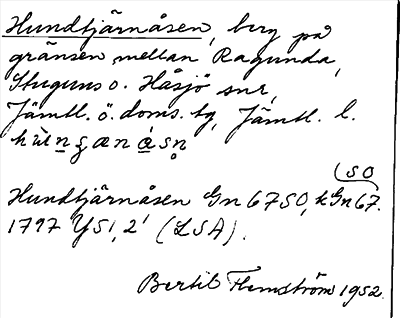 Hundtjärnåsen, berg på
gränsen mellan Ragunda,
Stuguns o. Håsjö snr,
Jämtl. ö. doms. tg, Jämtl. l.
(SO
Hundtjärnåsen Gn 67SO, kGn67.
1797 YS1, 2' (LSA).
Bertil Flemström 1952.